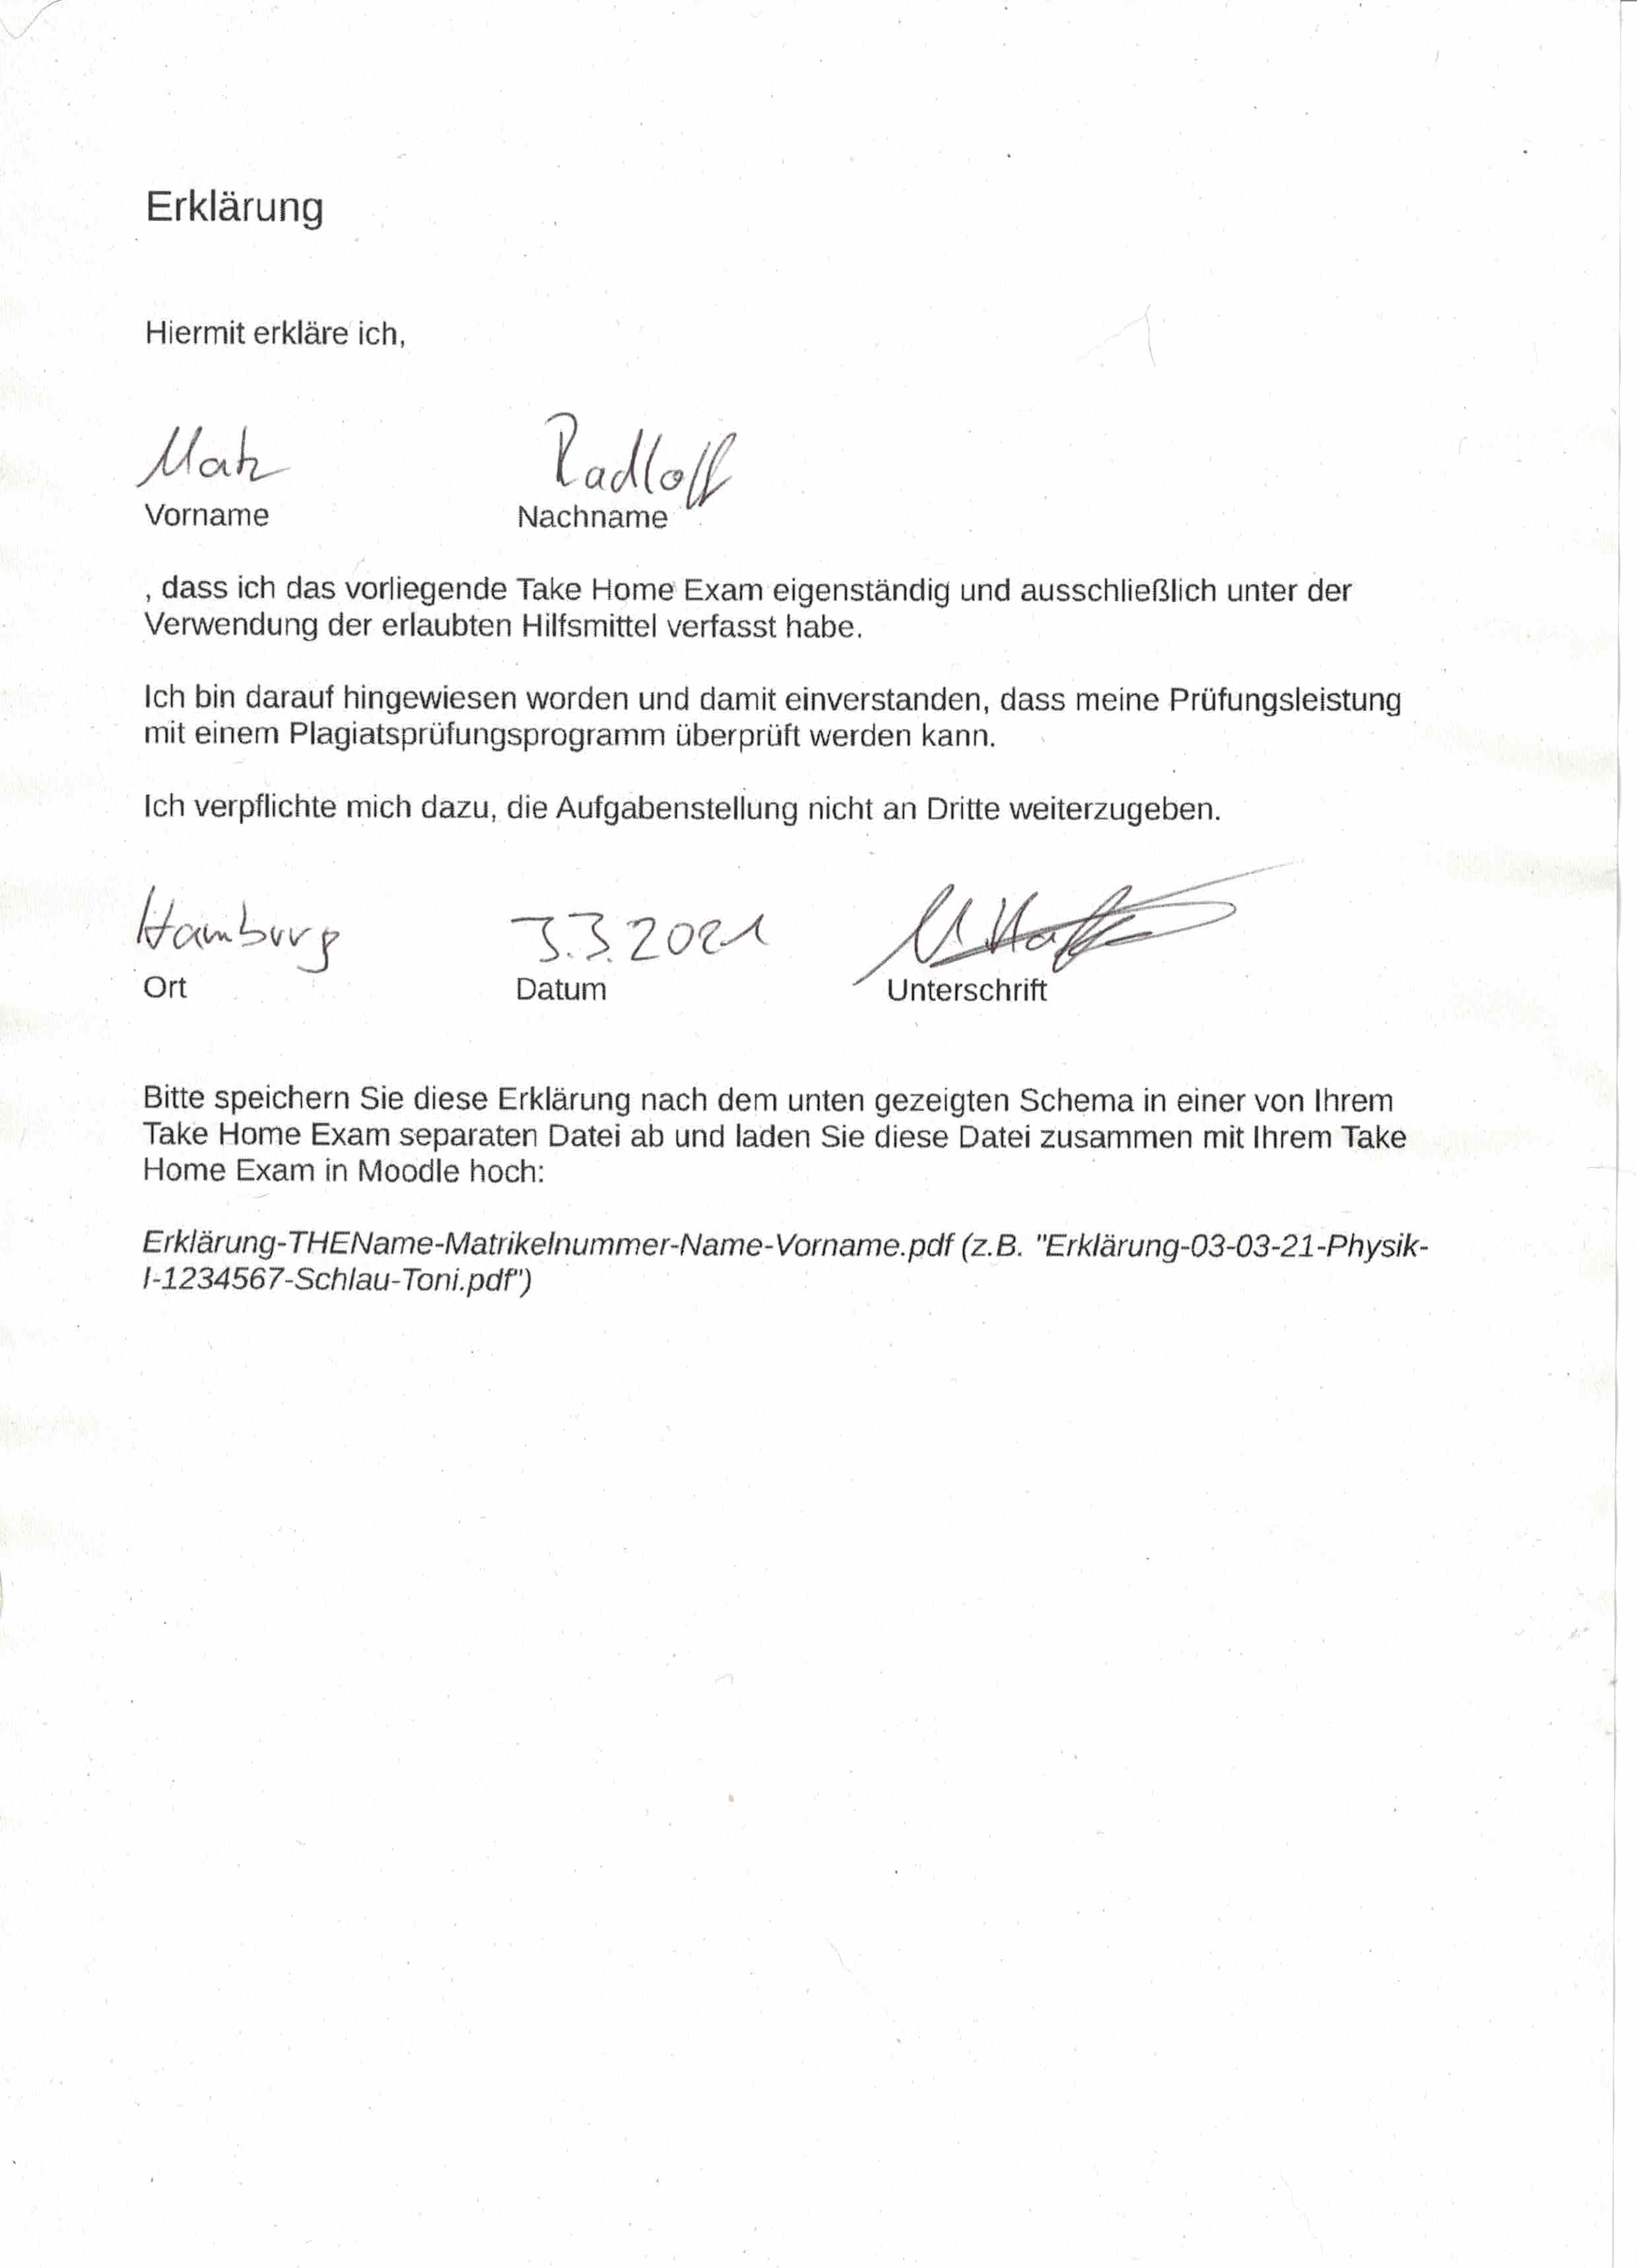 Erklärung
Hiermit erkläre ich,
Matz Radloff
Vorname Nachname
, dass ich das vorliegende Take Home Exam eigenständig und ausschließlich unter der
Verwendung der erlaubten Hilfsmittel verfasst habe.
Ich bin darauf hingewiesen worden und damit einverstanden, dass meine Prüfungsleistung
mit einem Plagiatsprüfungsprogramm überprüft werden kann.
Ich verpflichte mich dazu, die Aufgabenstellung nicht an Dritte weiterzugeben.
Hamburg 3.3.2021
Ort Datum Unterschrift
Bitte speichern Sie diese Erklärung nach dem unten gezeigten Schema in einer von Ihrem
Take Home Exam separaten Datei ab und laden Sie diese Datei zusammen mit Ihrem Take
Home Exam in Moodle hoch:
Erklärung-THEName-Matrikelnummer-Name-Vorname.pdf (z.B. "Erklärung-03-03-21-Physik-
I-1234567-Schlau-Toni.pdf")